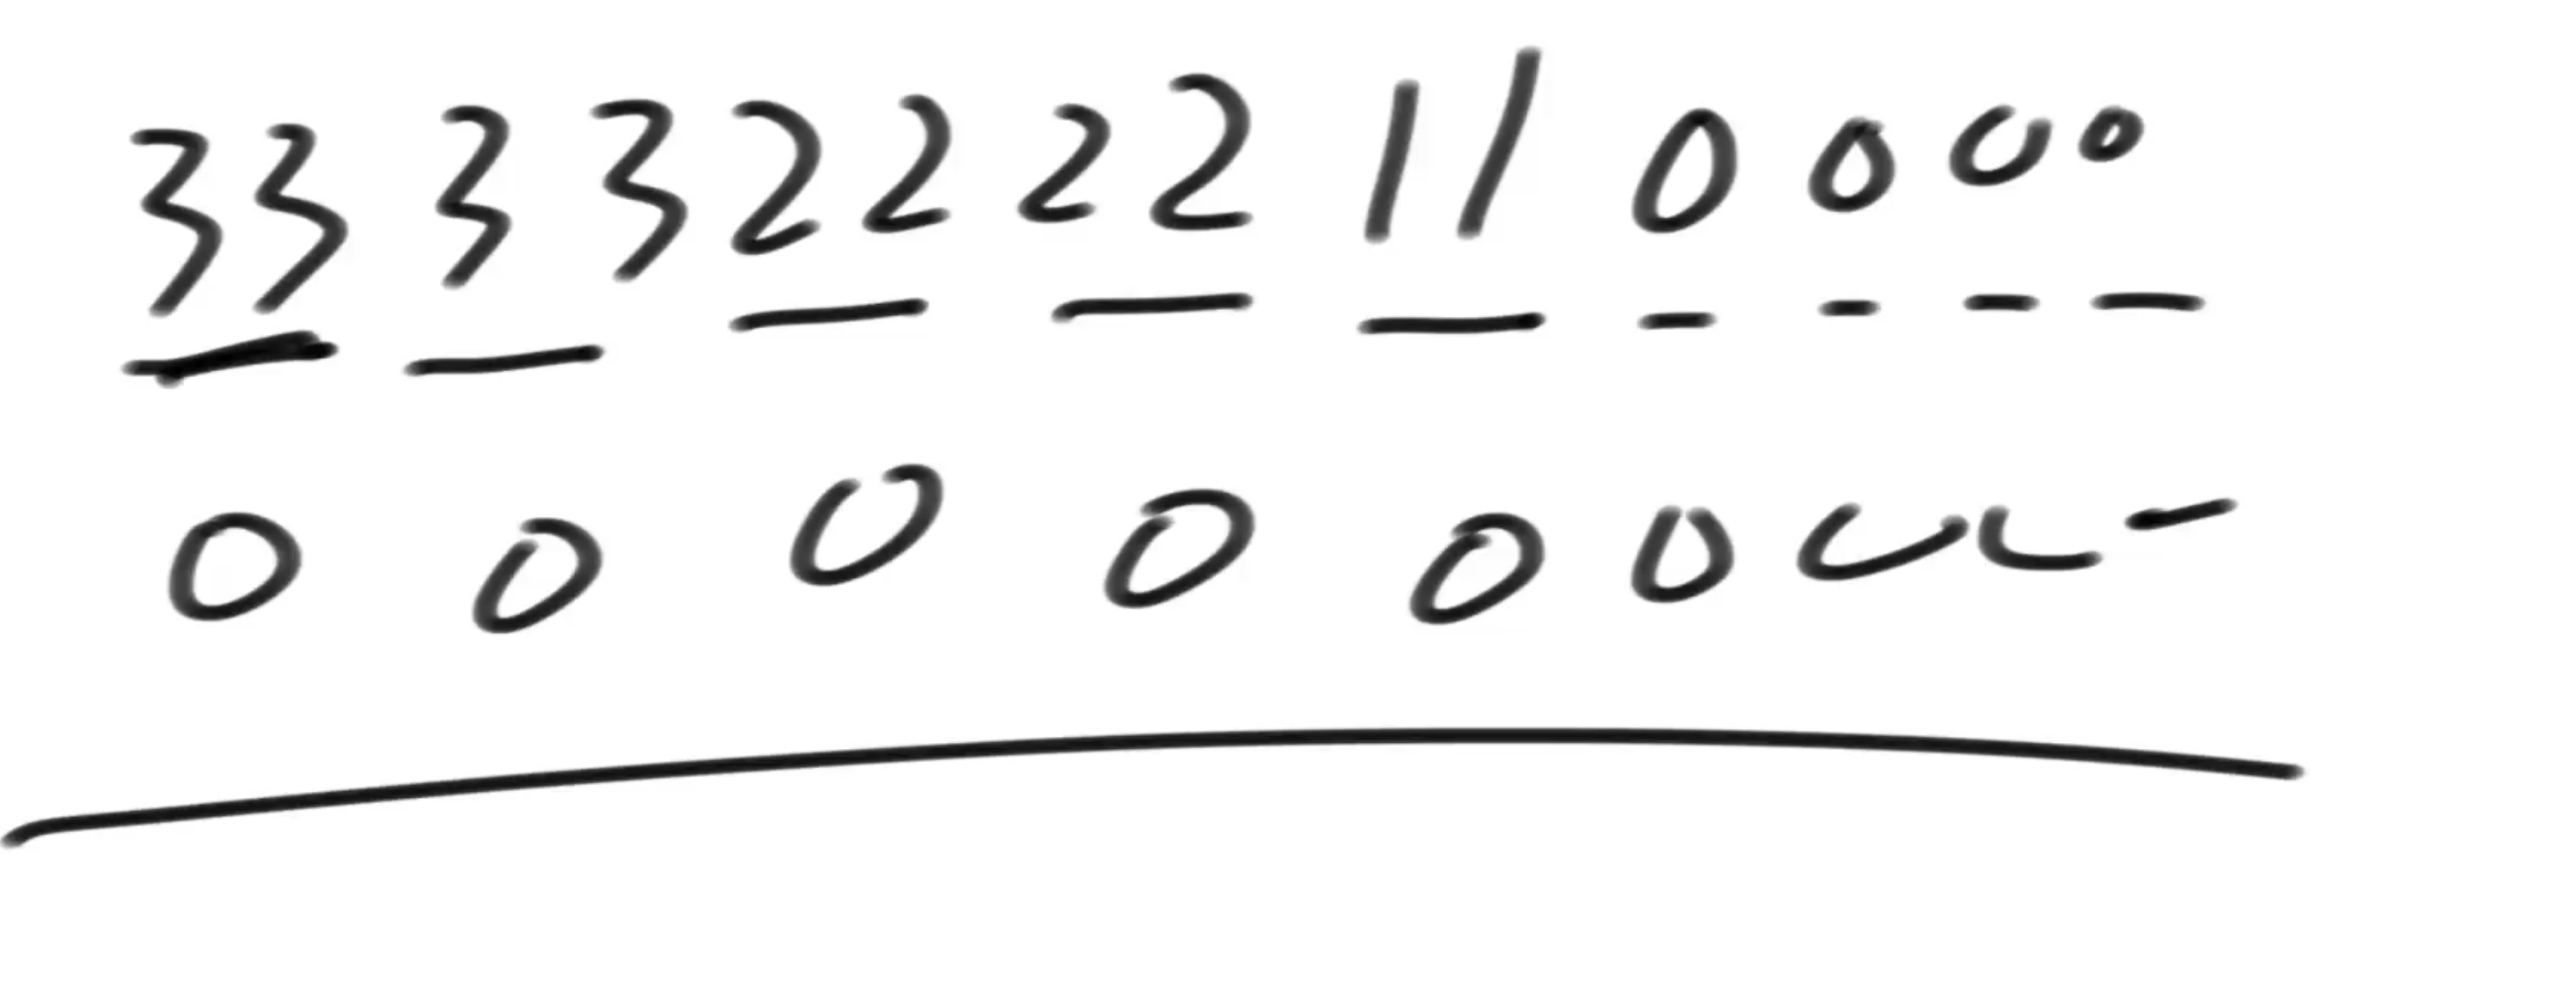 33 33 22 22 11 0 0 0 0
0 0 0 0 0 0